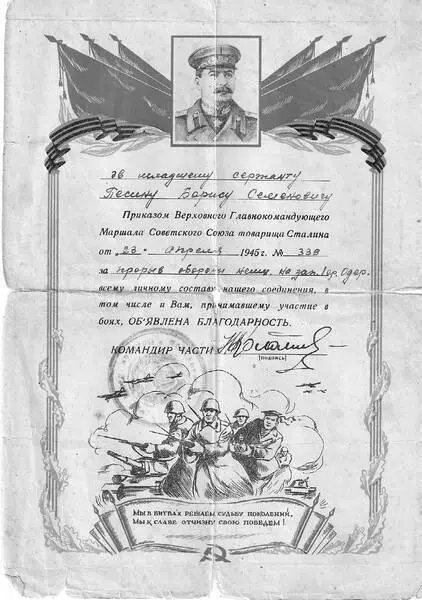 гв младшему сержанту
Песину Борису Семеновичу
Приказом Верховного Главнокомандующего
Маршала Советского Союза товарища Сталина
от „23“ апреля 1945 г. № 339
за прорыв обороны нем. на зап. бер. Одер.
всему личному составу нашего соединения, в
том числе и Вам, принимавшему участие в
боях, ОБ'ЯВЛЕНА БЛАГОДАРНОСТЬ.
КОМАНДИР ЧАСТИ
(ПОДПИСЬ)
МЫ В БИТВАХ РЕШАЕМ СУДЬБУ ПОКОЛЕНИЙ,
МЫ К СЛАВЕ ОТЧИЗНУ СВОЮ ПОВЕДЕМ!